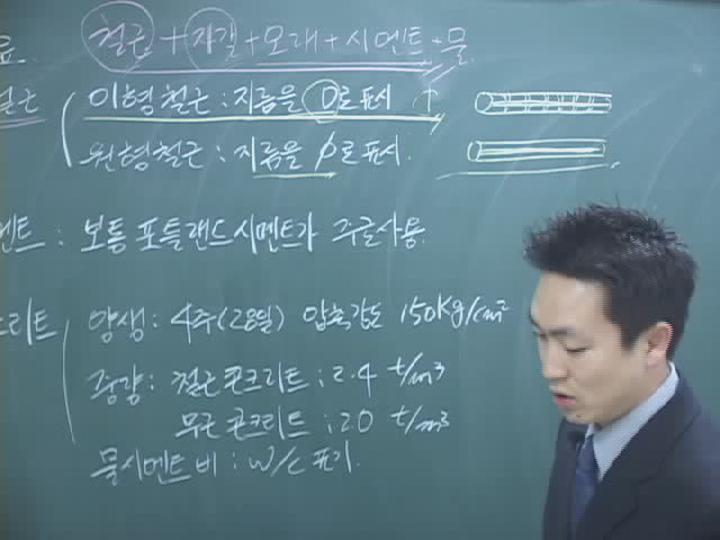 료 철근 + 자갈 + 모래 + 시멘트 + 물
철근 이형철근 : 지름을 D로 표시
원형철근 : 지름을 φ로 표시
멘트 : 보통 포틀랜드 시멘트가 주로 사용
크리트 양생 : 4주(28일) 압축강도 150Kg/cm²
중량 : 철근콘크리트 : 2.4 t/m³
무근콘크리트 : 2.0 t/m³
물시멘트비 : W/C 표기